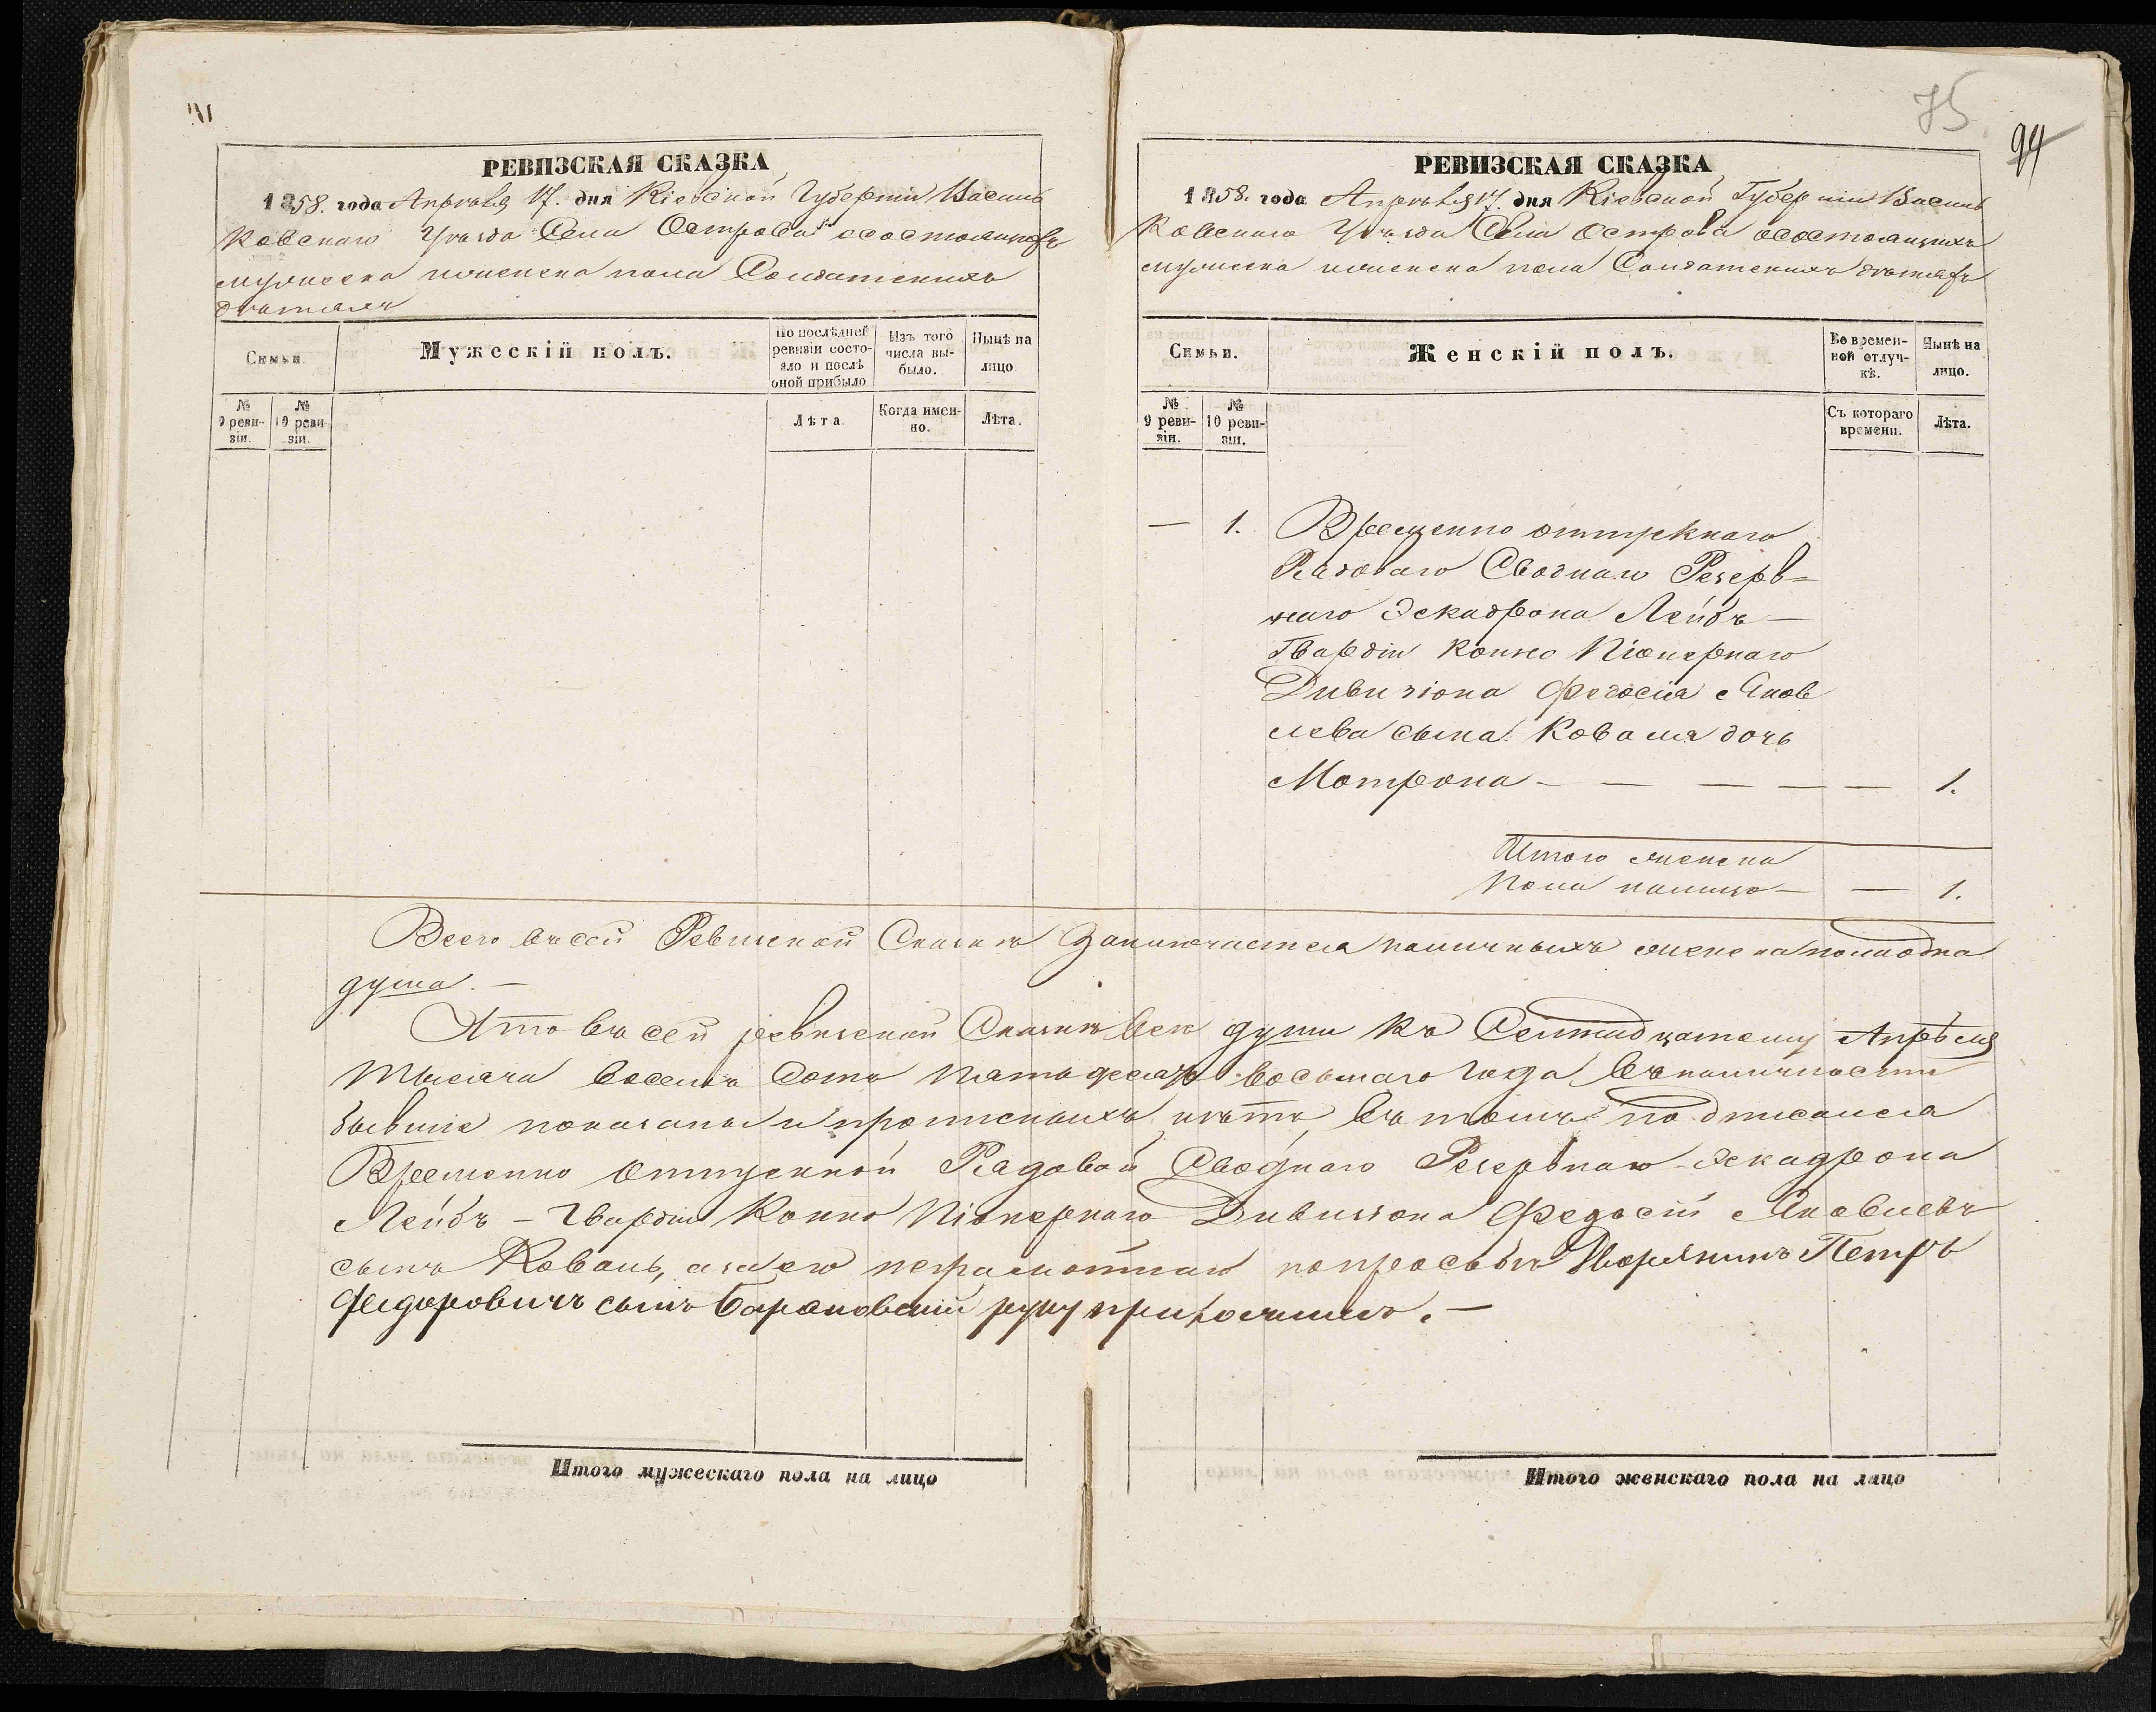 РЕВИЗСКАЯ СКАЗКА
1858. года Апрѣля 17. дня Кіевской Губерніи Василь
ковскаго Уѣзда Села Острова о состоящихъ
мужеска и женска пола Солдатскихъ
дѣтяхъ
Семьи.
Мужескій полъ.
По послѣдней ревизіи состояло и послѣ оной прибыло
Изъ того числа выбыло.
Нынѣ на лицо
№ 9 ревизіи.
№ 10 ревизіи.
Лѣта.
Когда именно.
Лѣта.
75
94
РЕВИЗСКАЯ СКАЗКА
1858. года Апрѣля 17. дня Кіевской Губерніи Василь
ковскаго Уѣзда Села Острова о состоящихъ
мужеска и женска пола Солдатскихъ дѣтяхъ
Семьи.
Женскій полъ.
Во временной отлучкѣ.
Нынѣ на лицо.
№ 9 ревизіи.
№ 10 ревизіи.
Съ котораго времени.
Лѣта.
— 1. Временно отпускнаго
Рядоваго Своднаго Резерв=
наго Эскадрона Лейбъ —
Гвардіи Конно Піонернаго
Дивизіона Федосія Яков
лева сына Коваля дочь
Мотрона — — — — — 1.
Итого женска
пола налицо — — 1.
Всего въ сей Ревизской Сказкѣ заключается наличныхъ женска пола одна
душа. —
Что въ сей ревизской Сказкѣ всѣ души къ Семнадцатому Апрѣля
тысяча восемь сотъ пятьдесятъ восьмаго года въ наличности
бывшіе показаны и прописныхъ нѣтъ, въ томъ подписался
Временно отпускной Рядовой Своднаго Резервнаго Эскадрона
Лейбъ — Гвардіи Конно Піонернаго Дивизіона Федосій Яковлевъ
сынъ Коваль, а за его неграмотнаго по просьбѣ Дворянинъ Петръ
Федоровичъ сынъ Барановскій руку приложилъ. —
Итого мужескаго пола на лицо
Итого женскаго пола на лицо